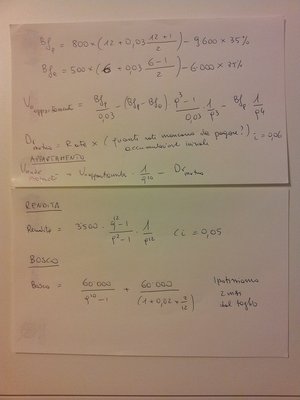 Bf_p = 800 × (12 + 0,03 (12+1)/2) - 9600 × 35%
Bf_0 = 500 × (6 + 0,03 (6-1)/2) - 6000 × 25%
V_0 appartamento = Bf_p/0,03 - (Bf_p - Bf_0) · (q^3-1)/0,03 · 1/q^3 - Bf_p 1/q^4
Dr mutuo = Rate × (quanti anni mancano da pagare?) i = 0,06
accumulazione iniziale
APPARTAMENTO
= V_0 appartamento · 1/q^10 - Dr mutuo
RENDITA
Rendita = 3500 · (q^12-1)/(q^2-1) · 1/q^12 (i = 0,05)
BOSCO
Bosco = 60000/(q^10-1) + 60000/(1+0,02×2/12)
Ipotiziamo
2
dal taglio